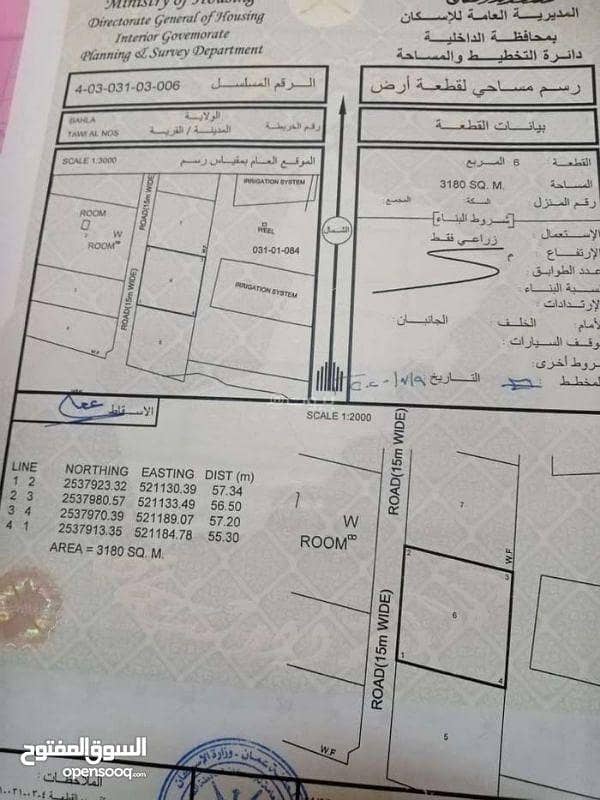 Ministry of Housing
Directorate General of Housing
Interior Govemorate
Planning & Survey Department
المديرية العامة للإسكان
بمحافظة الداخلية
دائرة التخطيط والمساحة
4-03-031-03-006 الرقم المسلسل
رسم مساحي لقطعة أرض
BAHLA الولاية
TAWI AL NOS المدينة / القرية رقم الخريطة
بيانات القطعة
SCALE 1:3000 الموقع العام بمقياس رسم
القطعة : 6 المربع
المساحة 3180 SQ. M.
رقم المنزل السكة المجمع:
شروط البناء
الإستعمال : زراعي فقط
الإرتفاع : م
عدد الطوابق :
نسبة البناء :
الإرتدادات :
لأمام: الخلف : الجانبان :
موقف السيارات :
شروط أخرى:
المخطط التاريخ
IRRIGATION SYSTEM
ROAD(15m WIDE)
ROOM
7
W
ROOM
WEEL
031-01-084
6
IRRIGATION SYSTEM
ROAD(15m WIDE)
W.F
5
الشمال
الاسقاط
SCALE 1:2000
LINE NORTHING EASTING DIST (m)
1 2 2537923.32 521130.39 57.34
2 3 2537980.57 521133.49 56.50
3 4 2537970.39 521189.07 57.20
4 1 2537913.35 521184.78 55.30
AREA = 3180 SQ. M.
ROAD(15m WIDE)
7
W
ROOM
W.F
2
3
6
ROAD(15m WIDE)
1
4
5
W.F
السوق المفتوح
opensooq.com
الملاحظات :